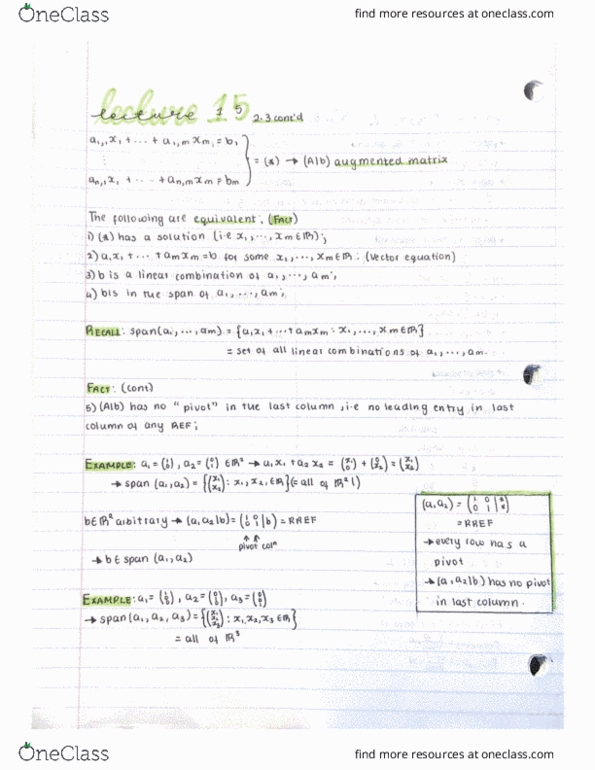 OneClass
find more resources at oneclass.com
lecture 15 2.3 cont'd
a₁,₁x₁ + ... + a₁,m xm = b₁
⋮
an,₁x₁ + ... + an,m xm = bm
= (*) → (A|b) augmented matrix
The following are equivalent: (FACT)
1) (*) has a solution (i.e x₁, ..., xm ∈ ℝ);
2) a₁x₁ + ... + amxm = b for some x₁, ..., xm ∈ ℝ; (vector equation)
3) b is a linear combination of a₁, ..., am;
4) b is in the span of a₁, ..., am;
RECALL: span(a₁, ..., am) = {a₁x₁ + ... + amxm : x₁, ..., xm ∈ ℝ}
= set of all linear combinations of a₁, ..., am.
FACT: (cont)
5) (A|b) has no "pivot" in the last column, i.e no leading entry in last
column of any REF;
EXAMPLE: a₁ = (1 0), a₂ = (0 1) ∈ ℝ² → a₁x₁ + a₂x₂ = (x₁ 0) + (0 x₂) = (x₁ x₂)
→ span (a₁, a₂) = {(x₁ x₂) : x₁, x₂ ∈ ℝ} (= all of ℝ²!)
b ∈ ℝ² arbitrary → (a₁ a₂|b) = (1 0 0 1 | b) = RREF
pivot colⁿ
→ b ∈ span (a₁, a₂)
= RREF
→ every row has a
pivot
→ (a₁ a₂|b) has no pivot
in last column.
EXAMPLE: a₁ = (1 0 0), a₂ = (0 1 0), a₃ = (0 0 1)
→ span (a₁, a₂, a₃) = {(x₁ x₂ x₃) : x₁, x₂, x₃ ∈ ℝ}
= all of ℝ³
OneClass
find more resources at oneclass.com